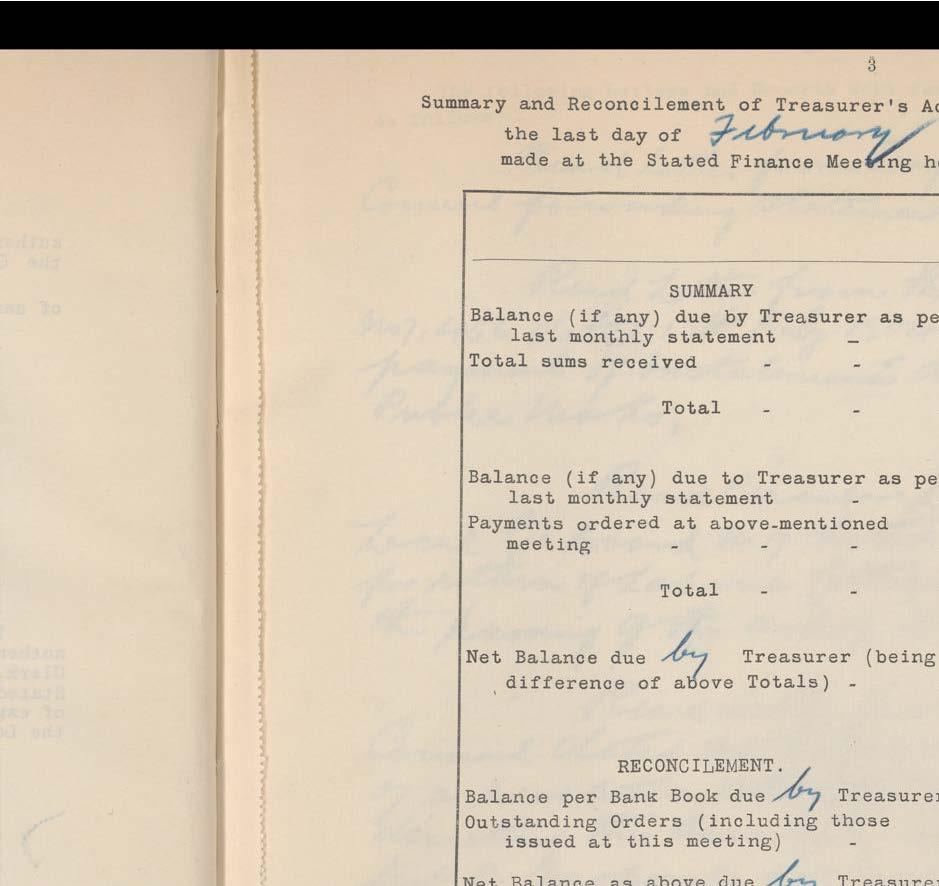 3
Summary and Reconcilement of Treasurer's Ac
the last day of February
made at the Stated Finance Meeting he
SUMMARY
Balance (if any) due by Treasurer as pe
last monthly statement -
Total sums received - -
Total - -
Balance (if any) due to Treasurer as pe
last monthly statement -
Payments ordered at above-mentioned
meeting - - -
Total - -
Net Balance due by Treasurer (being
difference of above Totals) -
RECONCILEMENT.
Balance per Bank Book due by Treasurer
Outstanding Orders (including those
issued at this meeting) -
Net Balance as above due by Treasurer